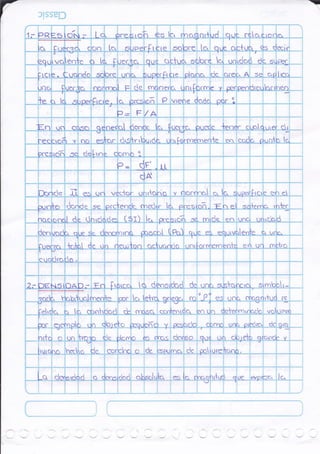 Classe
1.- PRESIÓN.- La presión es la magnitud que relaciona
la fuerza con la superficie sobre la que actúa, es decir
equivalente a la fuerza que actúa sobre la unidad de super
ficie. Cuando sobre una superficie plana de area A se aplica
una fuerza normal F de manera uniforme y perpendicularmen
te a la superficie, la presión P viene dada por :
P = F/A
En un caso general donde la fuerza puede tener cualquier di
rección y no estar distribuida uniformemente en cada punto la
presión se define como :
P = dF . u
dA
Donde ū es un vector unitario y normal a la superficie en el
punto donde se pretende medir la presión. En el sistema inter
nacional de Unidades (SI) la presión se mide en una unidad
derivada que se denomina pascal (Pa) que es equivalente a una
fuerza total de un newton actuando uniformemente en un metro
cuadrado.
2.- DENSIDAD.- En física la densidad de una sustancia, simboli-
zada habitualmente por la letra griega ro "ρ" es una magnitud re
ferida a la cantidad de masa contenida en un determinado volumen
por ejemplo un objeto pequeño y pesado, como una piedra de gra
nito o un trozo de plomo es mas denso que un objeto grande y
liviano hecho de corcho o de espuma de poliuretano.
La densidad o densidad absoluta es la magnitud que expresa la